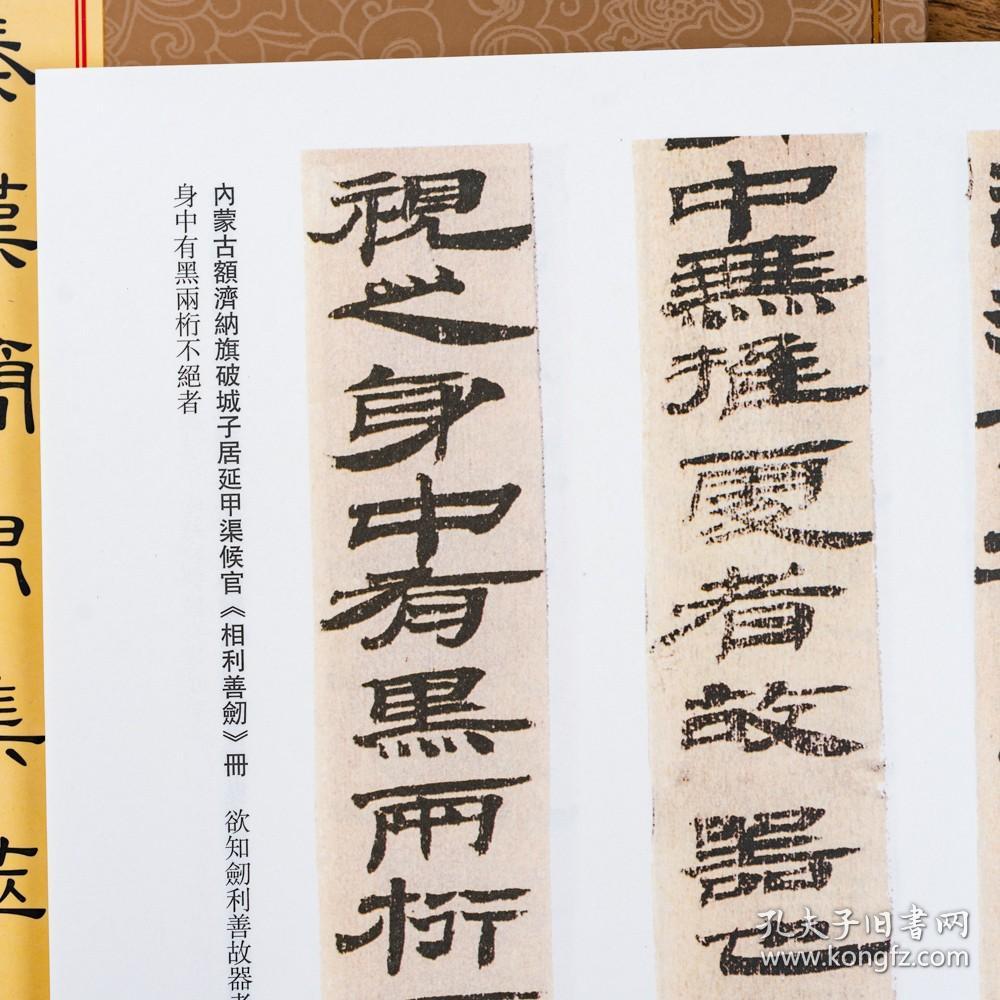 中無推更者故器已
視之身中有黑兩桁
內蒙古額濟納旗破城子居延甲渠候官《相利善劒》冊 欲知劒利善故器者
身中有黑兩桁不絕者
秦漢簡帛集萃
孔夫子旧书网
www.kongfz.com